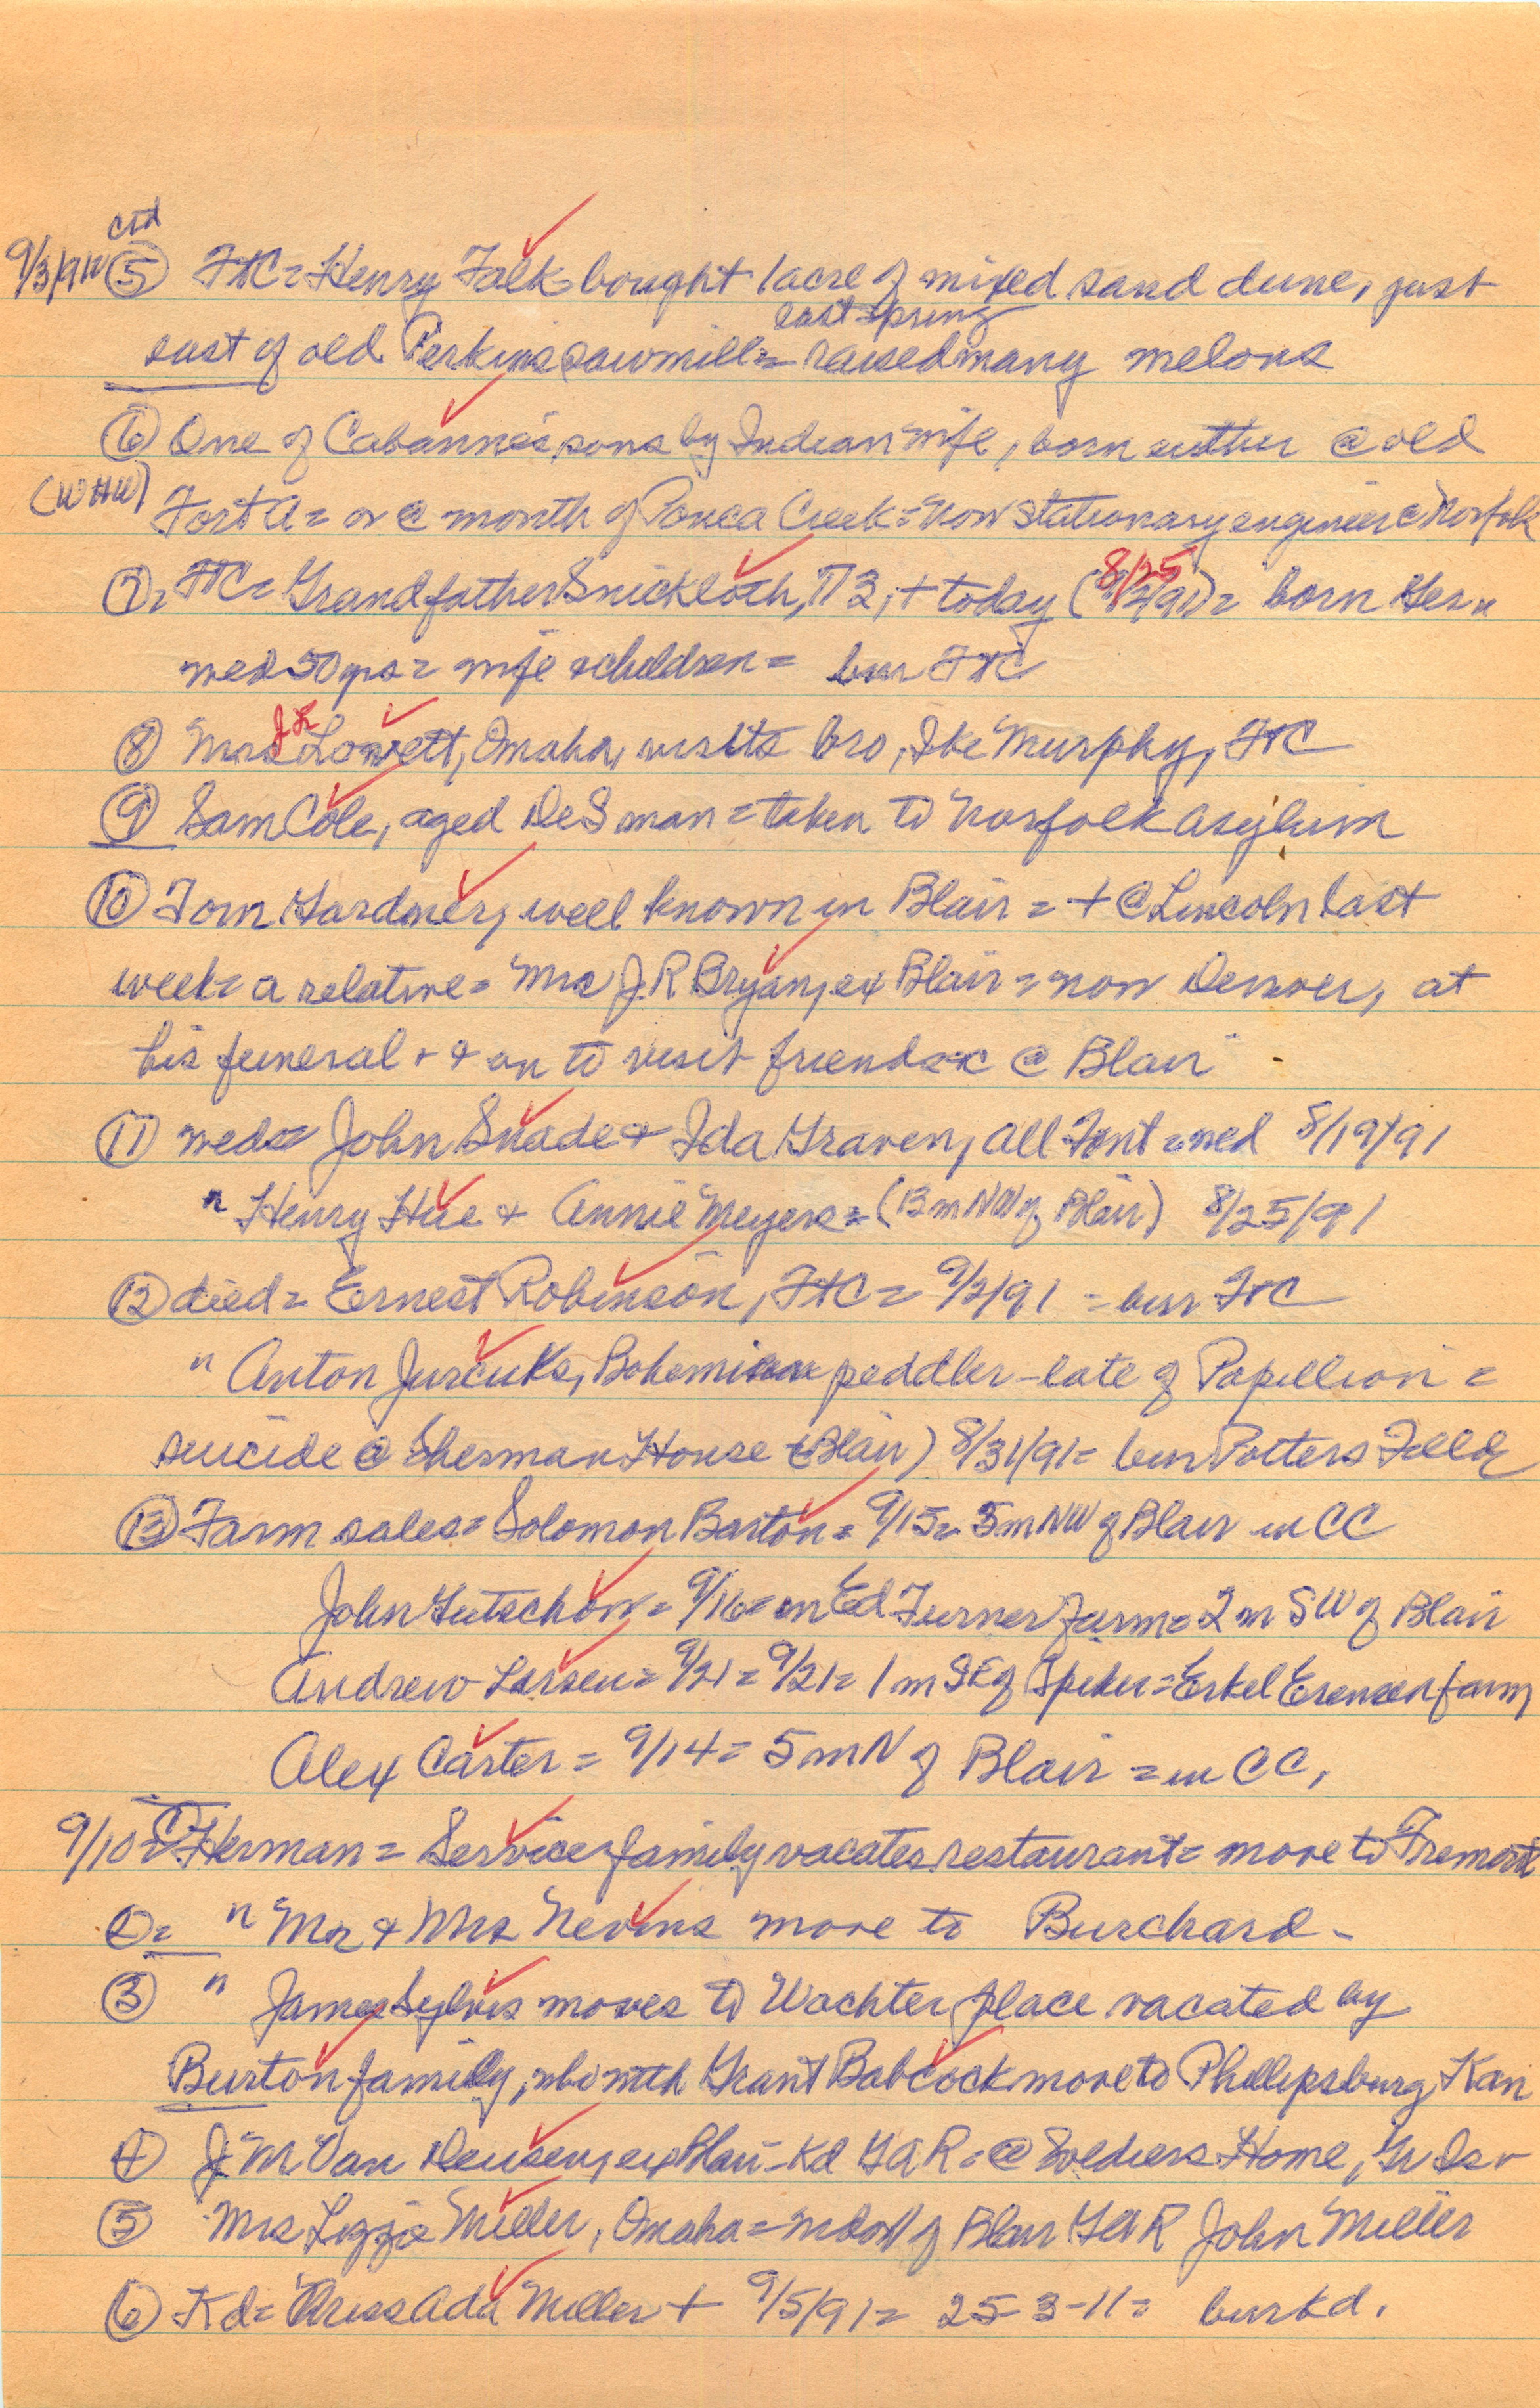 ctd
9/3/91 ⑤ FtC = Henry Falk bought 1 acre of mixed sand dune, just
last spring
east of old Perkins sawmill = raised many melons
⑥ One of Cabanne's sons by Indian wife, born either @ old
(WHW) Fort A = or @ mouth of Ponca Creek = now stationary engineer @ Norfolk
⑦ = FtC = Grandfather Snickloth, 73, + today (8/25 9/2/91) = born Ger =
wed 50 yrs = wife & children = bur FtC
⑧ Mrs J L Lovett, Omaha, visits bro, Ike Murphy, FtC
⑨ Sam Cole, aged DeS man = taken to Norfolk asylum
⑩ Tom Gardner, well known in Blair = + @ Lincoln last
week = a relative = Mrs J.R Bryan, ex Blair = now Denver, at
his funeral + & on to visit friends @ Blair
⑪ weds = John Snade & Ida Graven, all Font = wed 8/19/91
" Henry Hue & Annie Meyers = (13 m NW of Blair) 8/25/91
⑫ died = Ernest Robinson, FtC = 9/2/91 = bur FtC
" Anton Jurcuks, Bohemian peddler - late of Papillion =
suicide @ Sherman House (Blair) 8/31/91 = bur Potters Field
⑬ Farm sales = Solomon Barton = 9/15 = 5 m NW of Blair in CC
John Gutschow = 9/16 = on Ed Turner farm = 2 m SW of Blair
Andrew Larsen = 9/21 = 9/21 = 1 m SE of Spiker = Erkel Erensen farm
Alex Carter = 9/14 = 5 m N of Blair = in CC,
9/10 = ① Herman = Service family vacates restaurant = move to Fremont
② = " Mr & Mrs Nevins move to Burchard -
③ " James Sylvis moves to Wachter place vacated by
Burton family, who with Grant Babcock move to Phillipsburg, Kan
④ J M Van Deusen, ex Blair - Kd GAR = @ Soldiers Home, Gr Is
⑤ Mrs Lizzie Miller, Omaha = widow of Blair GAR John Miller
⑥ Kd = Miss Ada Miller + 9/5/91 = 25-3-11 = bur Kd.